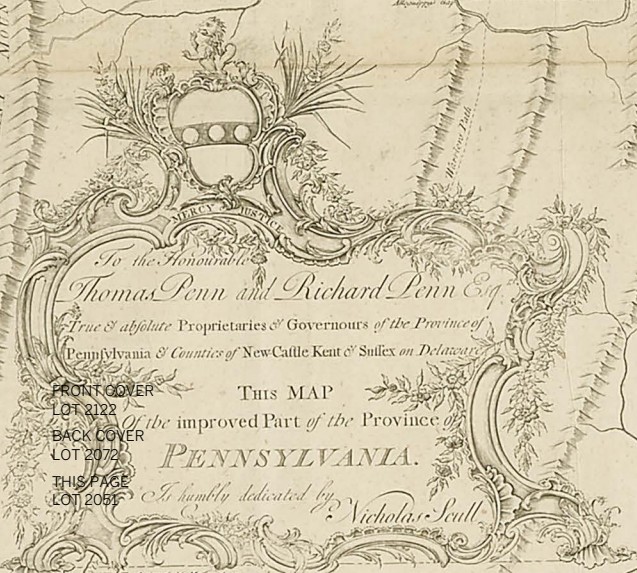 Warriors Path
MERCY JUSTICE
To the Honourable
Thomas Penn and Richard Penn Esqr.
True & absolute Proprietaries & Governours of the Province of
Pennsylvania & Counties of New-Castle Kent & Sussex on Delaware
THIS MAP
Of the improved Part of the Province of
PENNSYLVANIA.
Is humbly dedicated by
Nicholas Scull
FRONT COVER
LOT 2122
BACK COVER
LOT 2072
THIS PAGE
LOT 2051